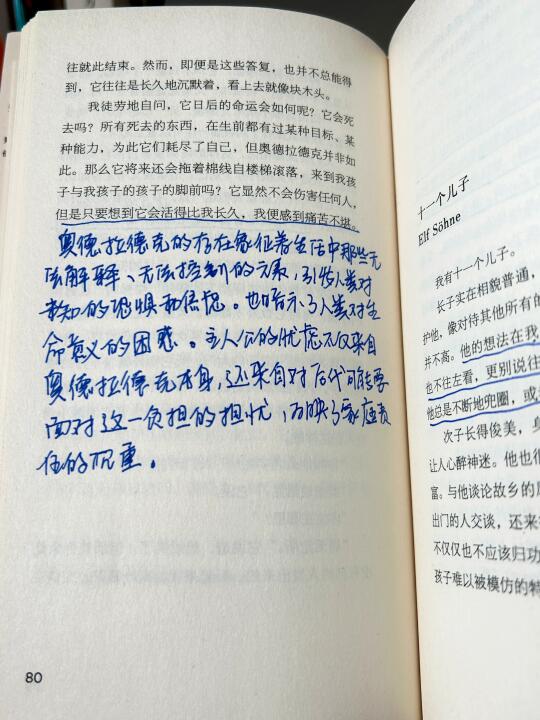 往就此结束。然而，即便是这些答复，也并不总能得
到，它往往是长久地沉默着，看上去就像块木头。
我徒劳地自问，它日后的命运会如何呢？它会死
去吗？所有死去的东西，在生前都有过某种目标、某
种能力，为此它们耗尽了自己，但奥德拉德克并非如
此。那么它将来还会拖着棉线自楼梯滚落，来到我孩
子与我孩子的孩子的脚前吗？它显然不会伤害任何人，
但是只要想到它会活得比我长久，我便感到痛苦不堪。
奥德拉德克的存在象征着生活中那些无
法解释、无法控制的元素，引发人类对
未知的恐惧和焦虑。也暗示了人类对生
命意义的困惑。主人公的忧虑不仅来自
奥德拉德克本身，还来自对后代可能要
面对这一负担的担忧，反映了家庭责
任的沉重。
80
十一个儿子
Elf Söhne
我有十一个儿子。
长子实在相貌普通，
护他，像对待其他所有的
并不高。他的想法在我
也不往左看，更别说往
他总是不断地兜圈，或
次子长得俊美，身
让人心醉神迷。他也很
富。与他谈论故乡的
出门的人交谈，还来
不仅仅也不应该归功
孩子难以被模仿的特